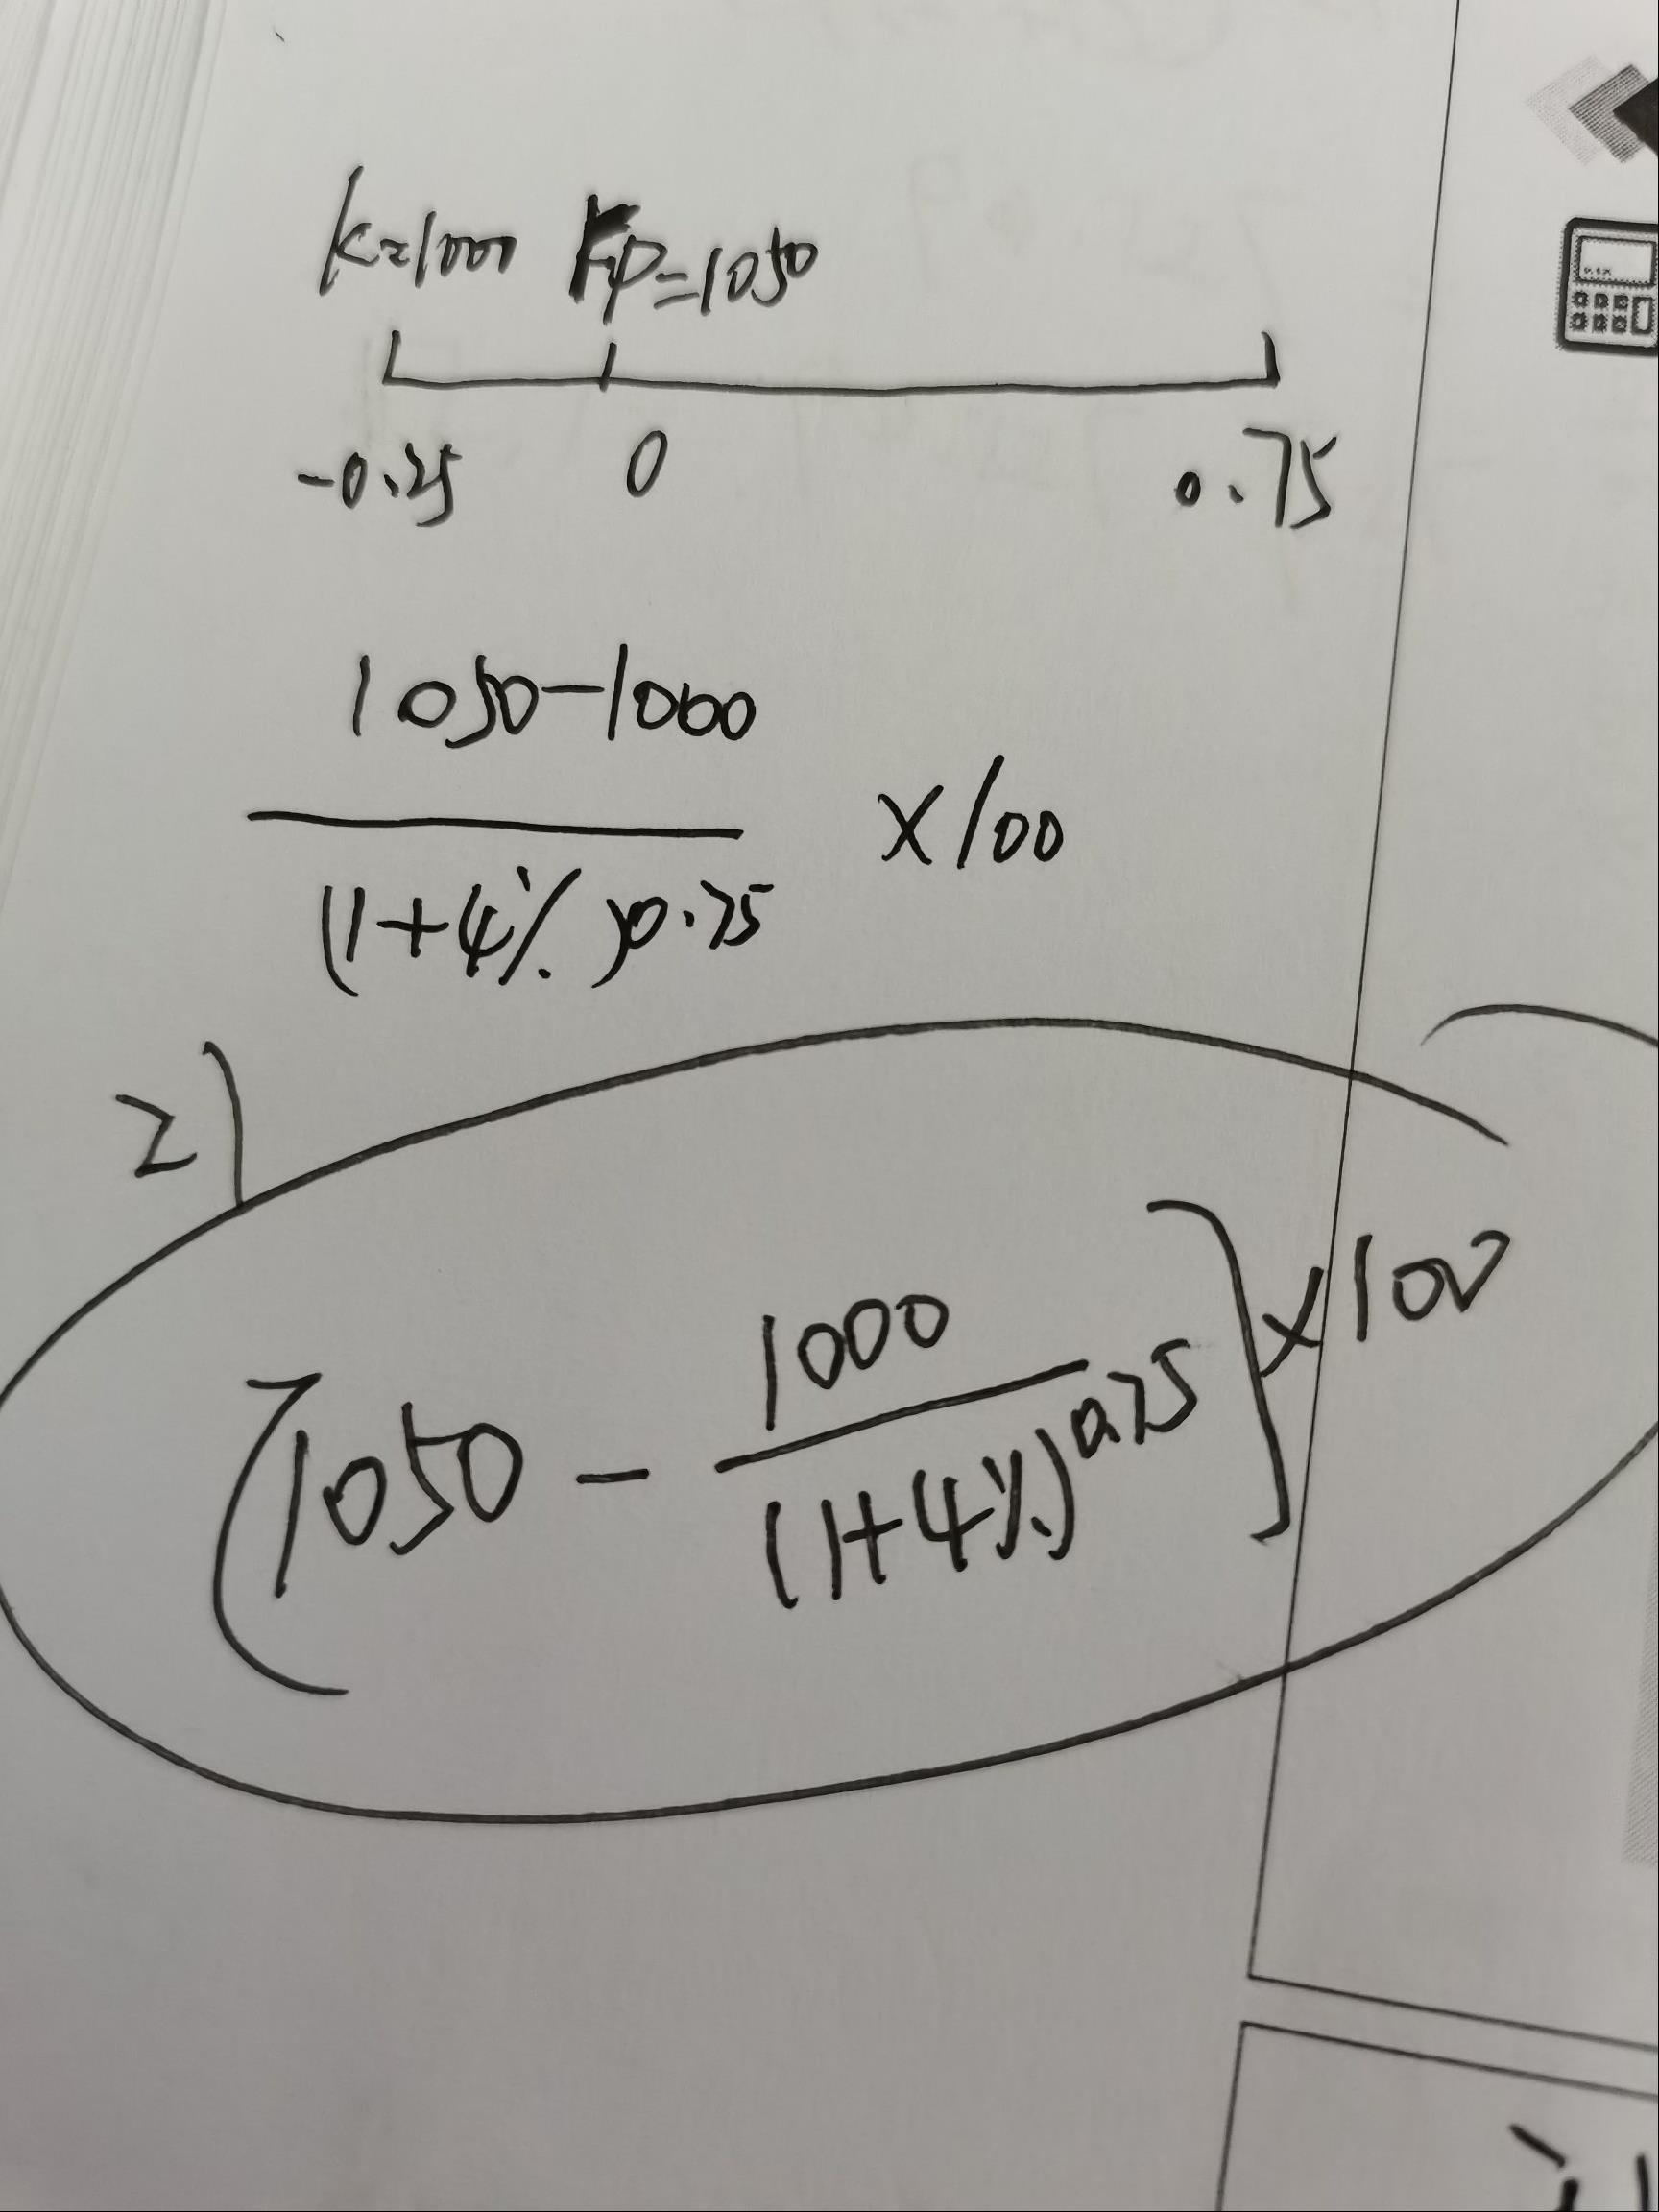 K=1000 Fp=1050
-0.25 0 0.75
1050-1000
×100
(1+4%)0.75
2)
1000
[1050 - ]×100
(1+4%)^0.75